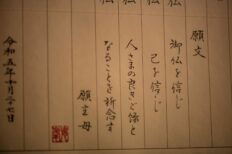 願文
御仏を信じ
己を信じ
人さまの良きご縁と
なることを祈念す
願主母
令和五年十月二十七日